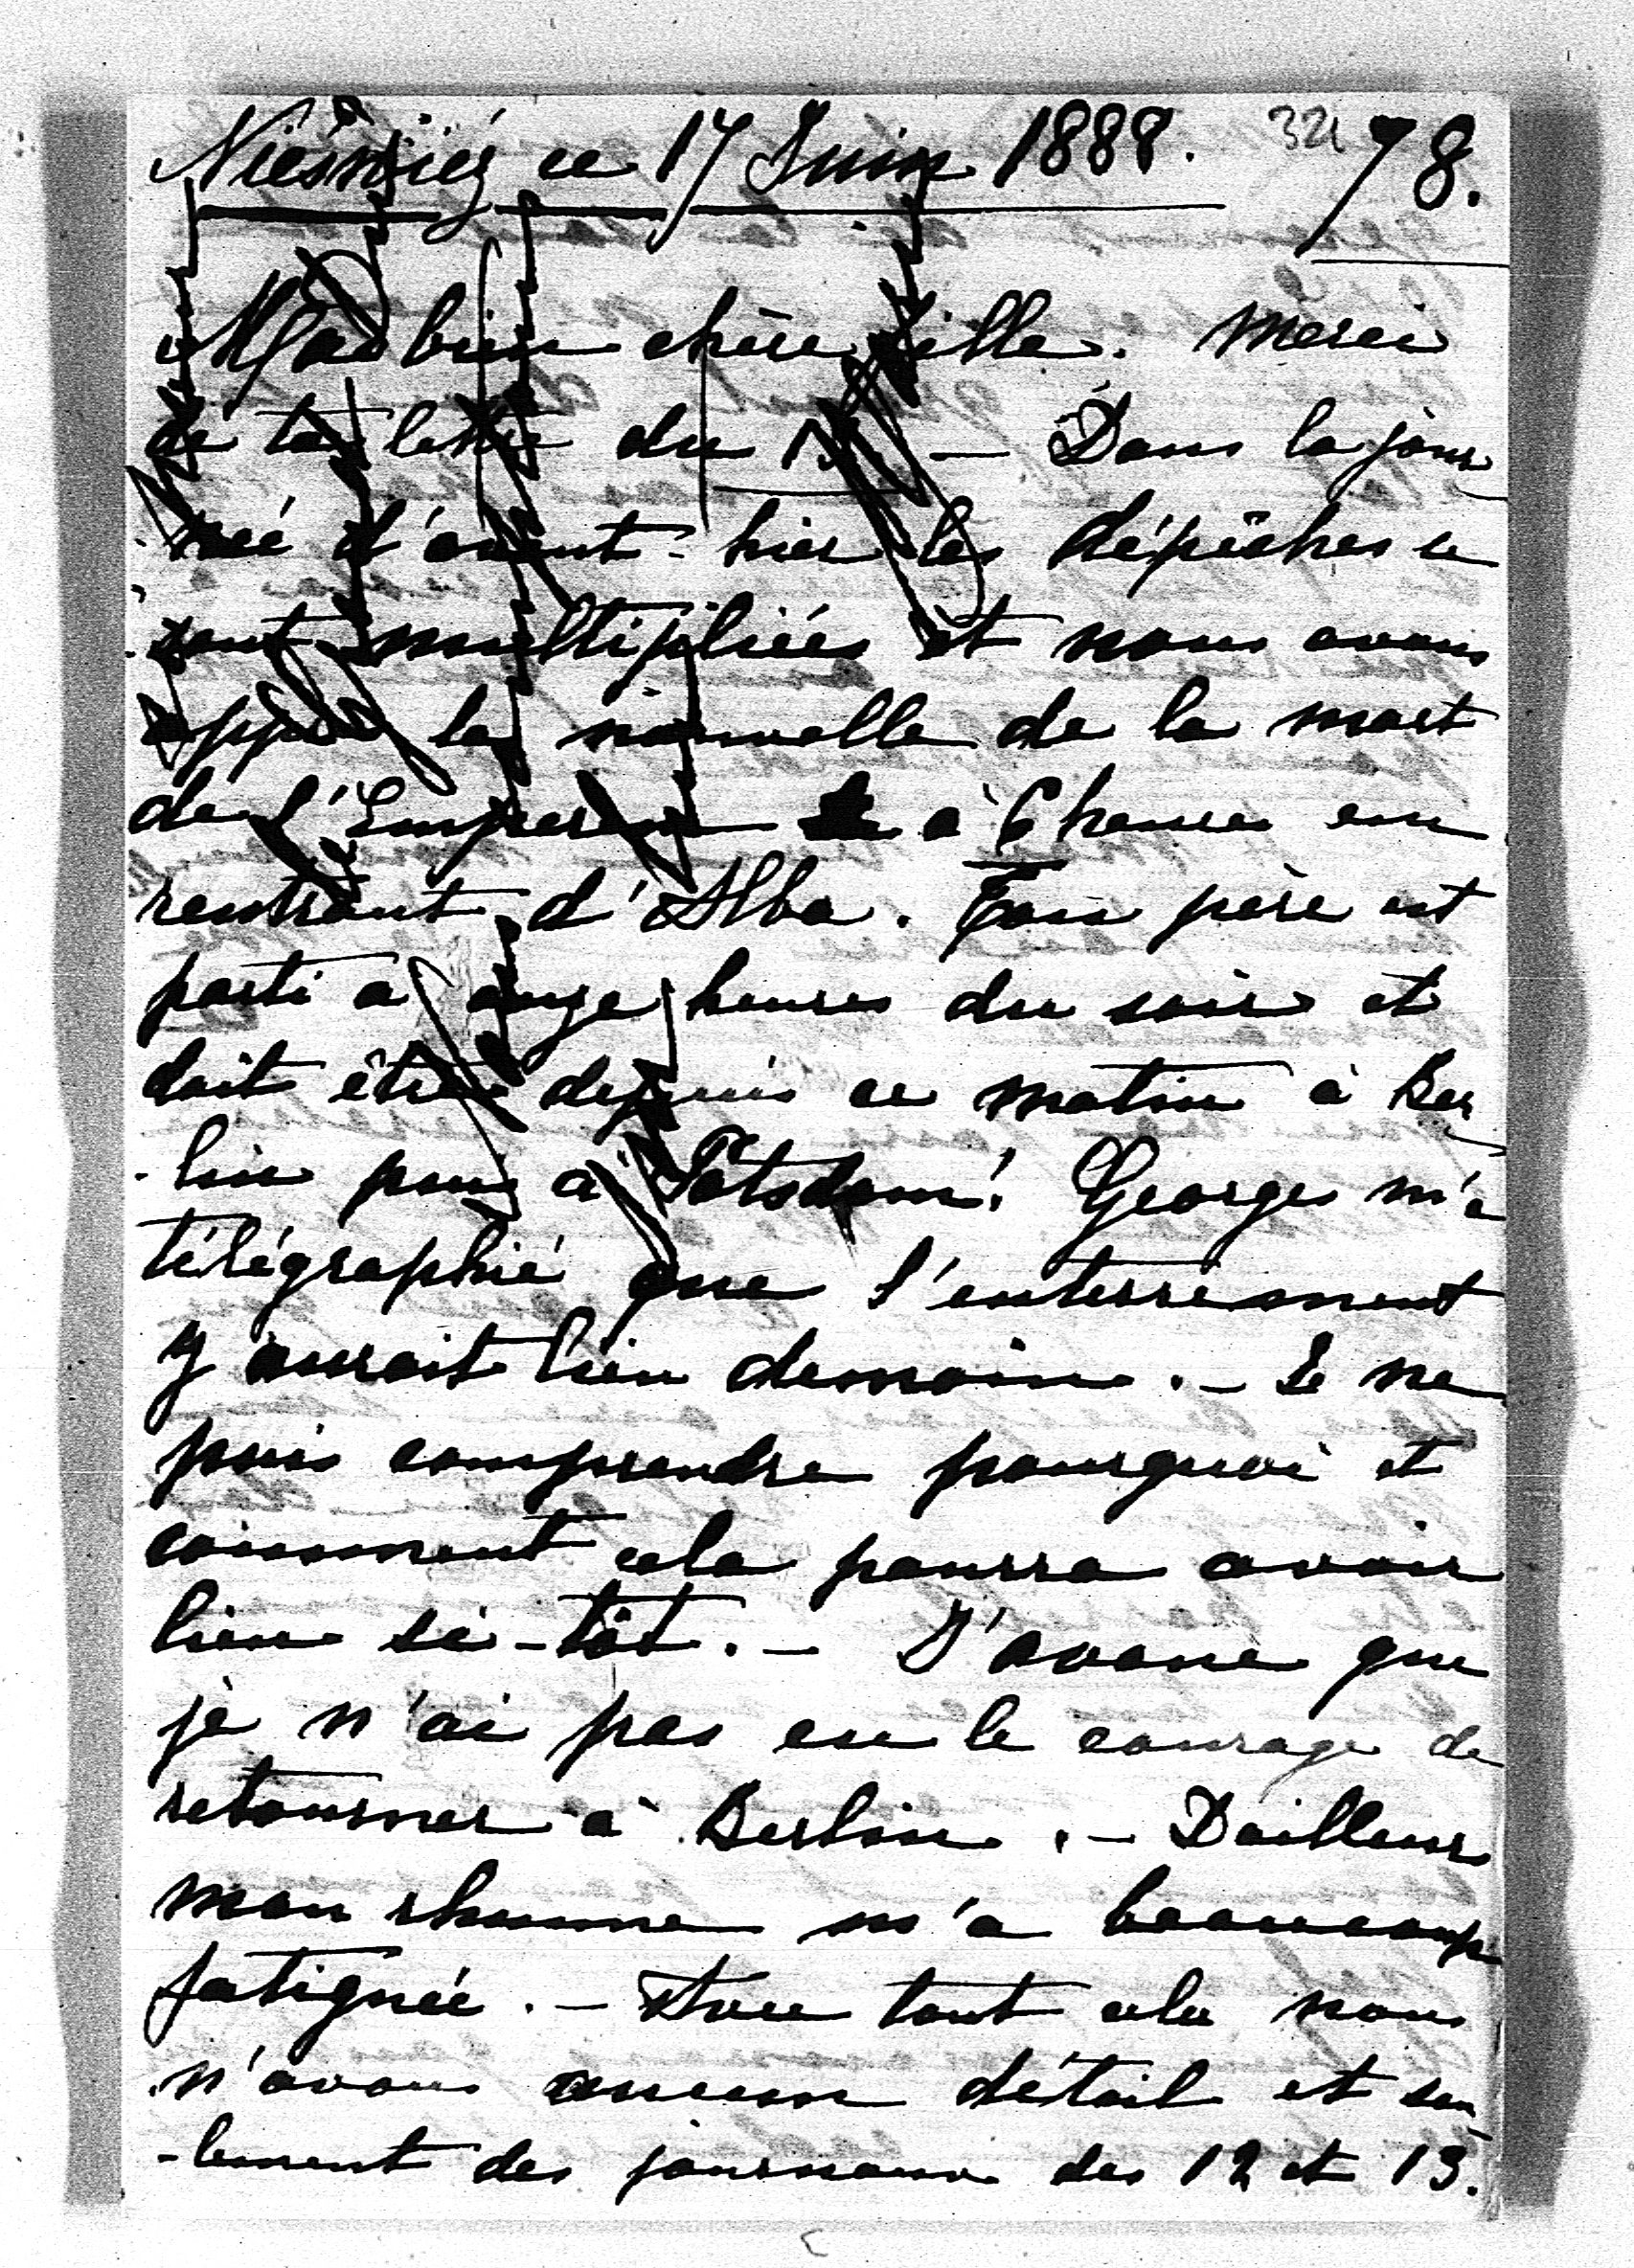 Nieśwież ce 17 Juin 1888. 321 78.
Ma bien chère fille. Merci
de ta lettre du — Dans la jour
née d'avant-hier les dépêches se
sont multipliées et nous avons
appris la nouvelle de la mort
de l'Empereur à 6 heures en
rentrant d'Alba. Ton père est
parti a onze heures du soir et
doit être depuis ce matin à Ber
-lin puis à Potsdam! Georges m'a
télégraphié que l'enterrement
y aurait lieu demain. — Je ne
puis comprendre pourquoi et
comment cela pourra avoir
lieu si-tôt. — J'avoue que
je n'ai pas eu le courage de
retourner à Berlin. — Dailleurs
mon rhume m'a beaucoup
fatiguée. — Avec tout cela nous
n'avons aucun détail et seu
-lement des journaux des 12 et 13.